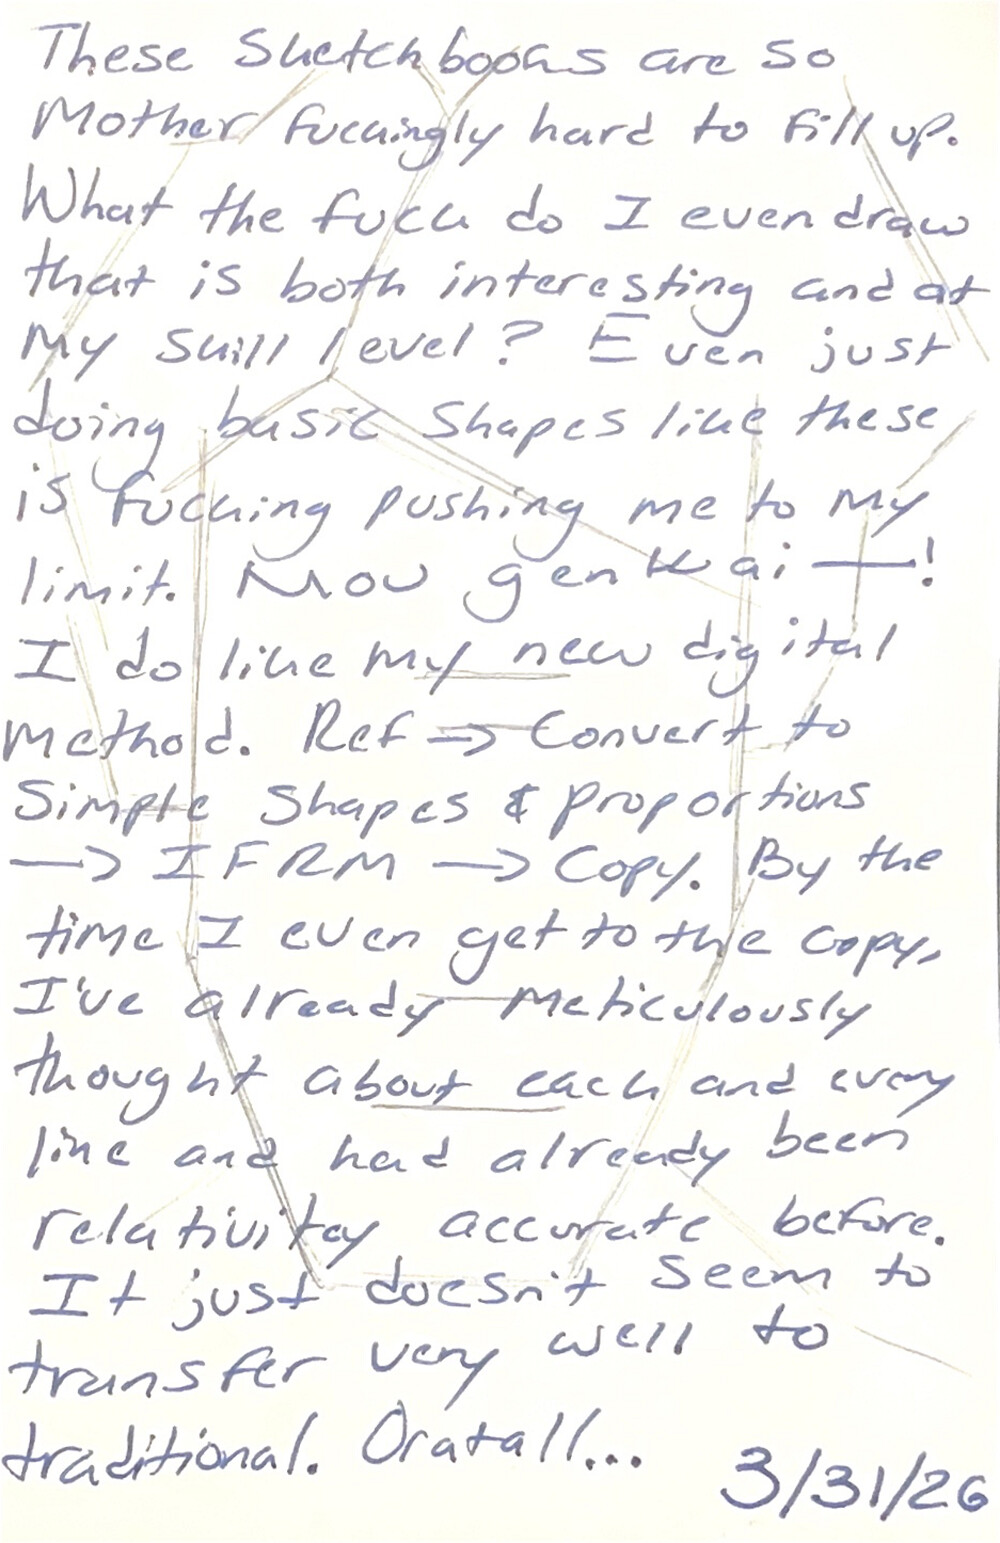 These Sketchbooks are so
Mother fuckingly hard to fill up.
What the fuck do I even draw
that is both interesting and at
my skill level? Even just
doing basic shapes like these
is fucking pushing me to my
limit. Mou genkai —!
I do like my new digital
method. Ref → Convert to
Simple Shapes & proportions
→ IFRM → Copy. By the
time I even get to the copy,
I've already meticulously
thought about each and every
line and had already been
relativitey accurate before.
It just doesn't seem to
transfer very well to
traditional. Oratall...
3/31/26